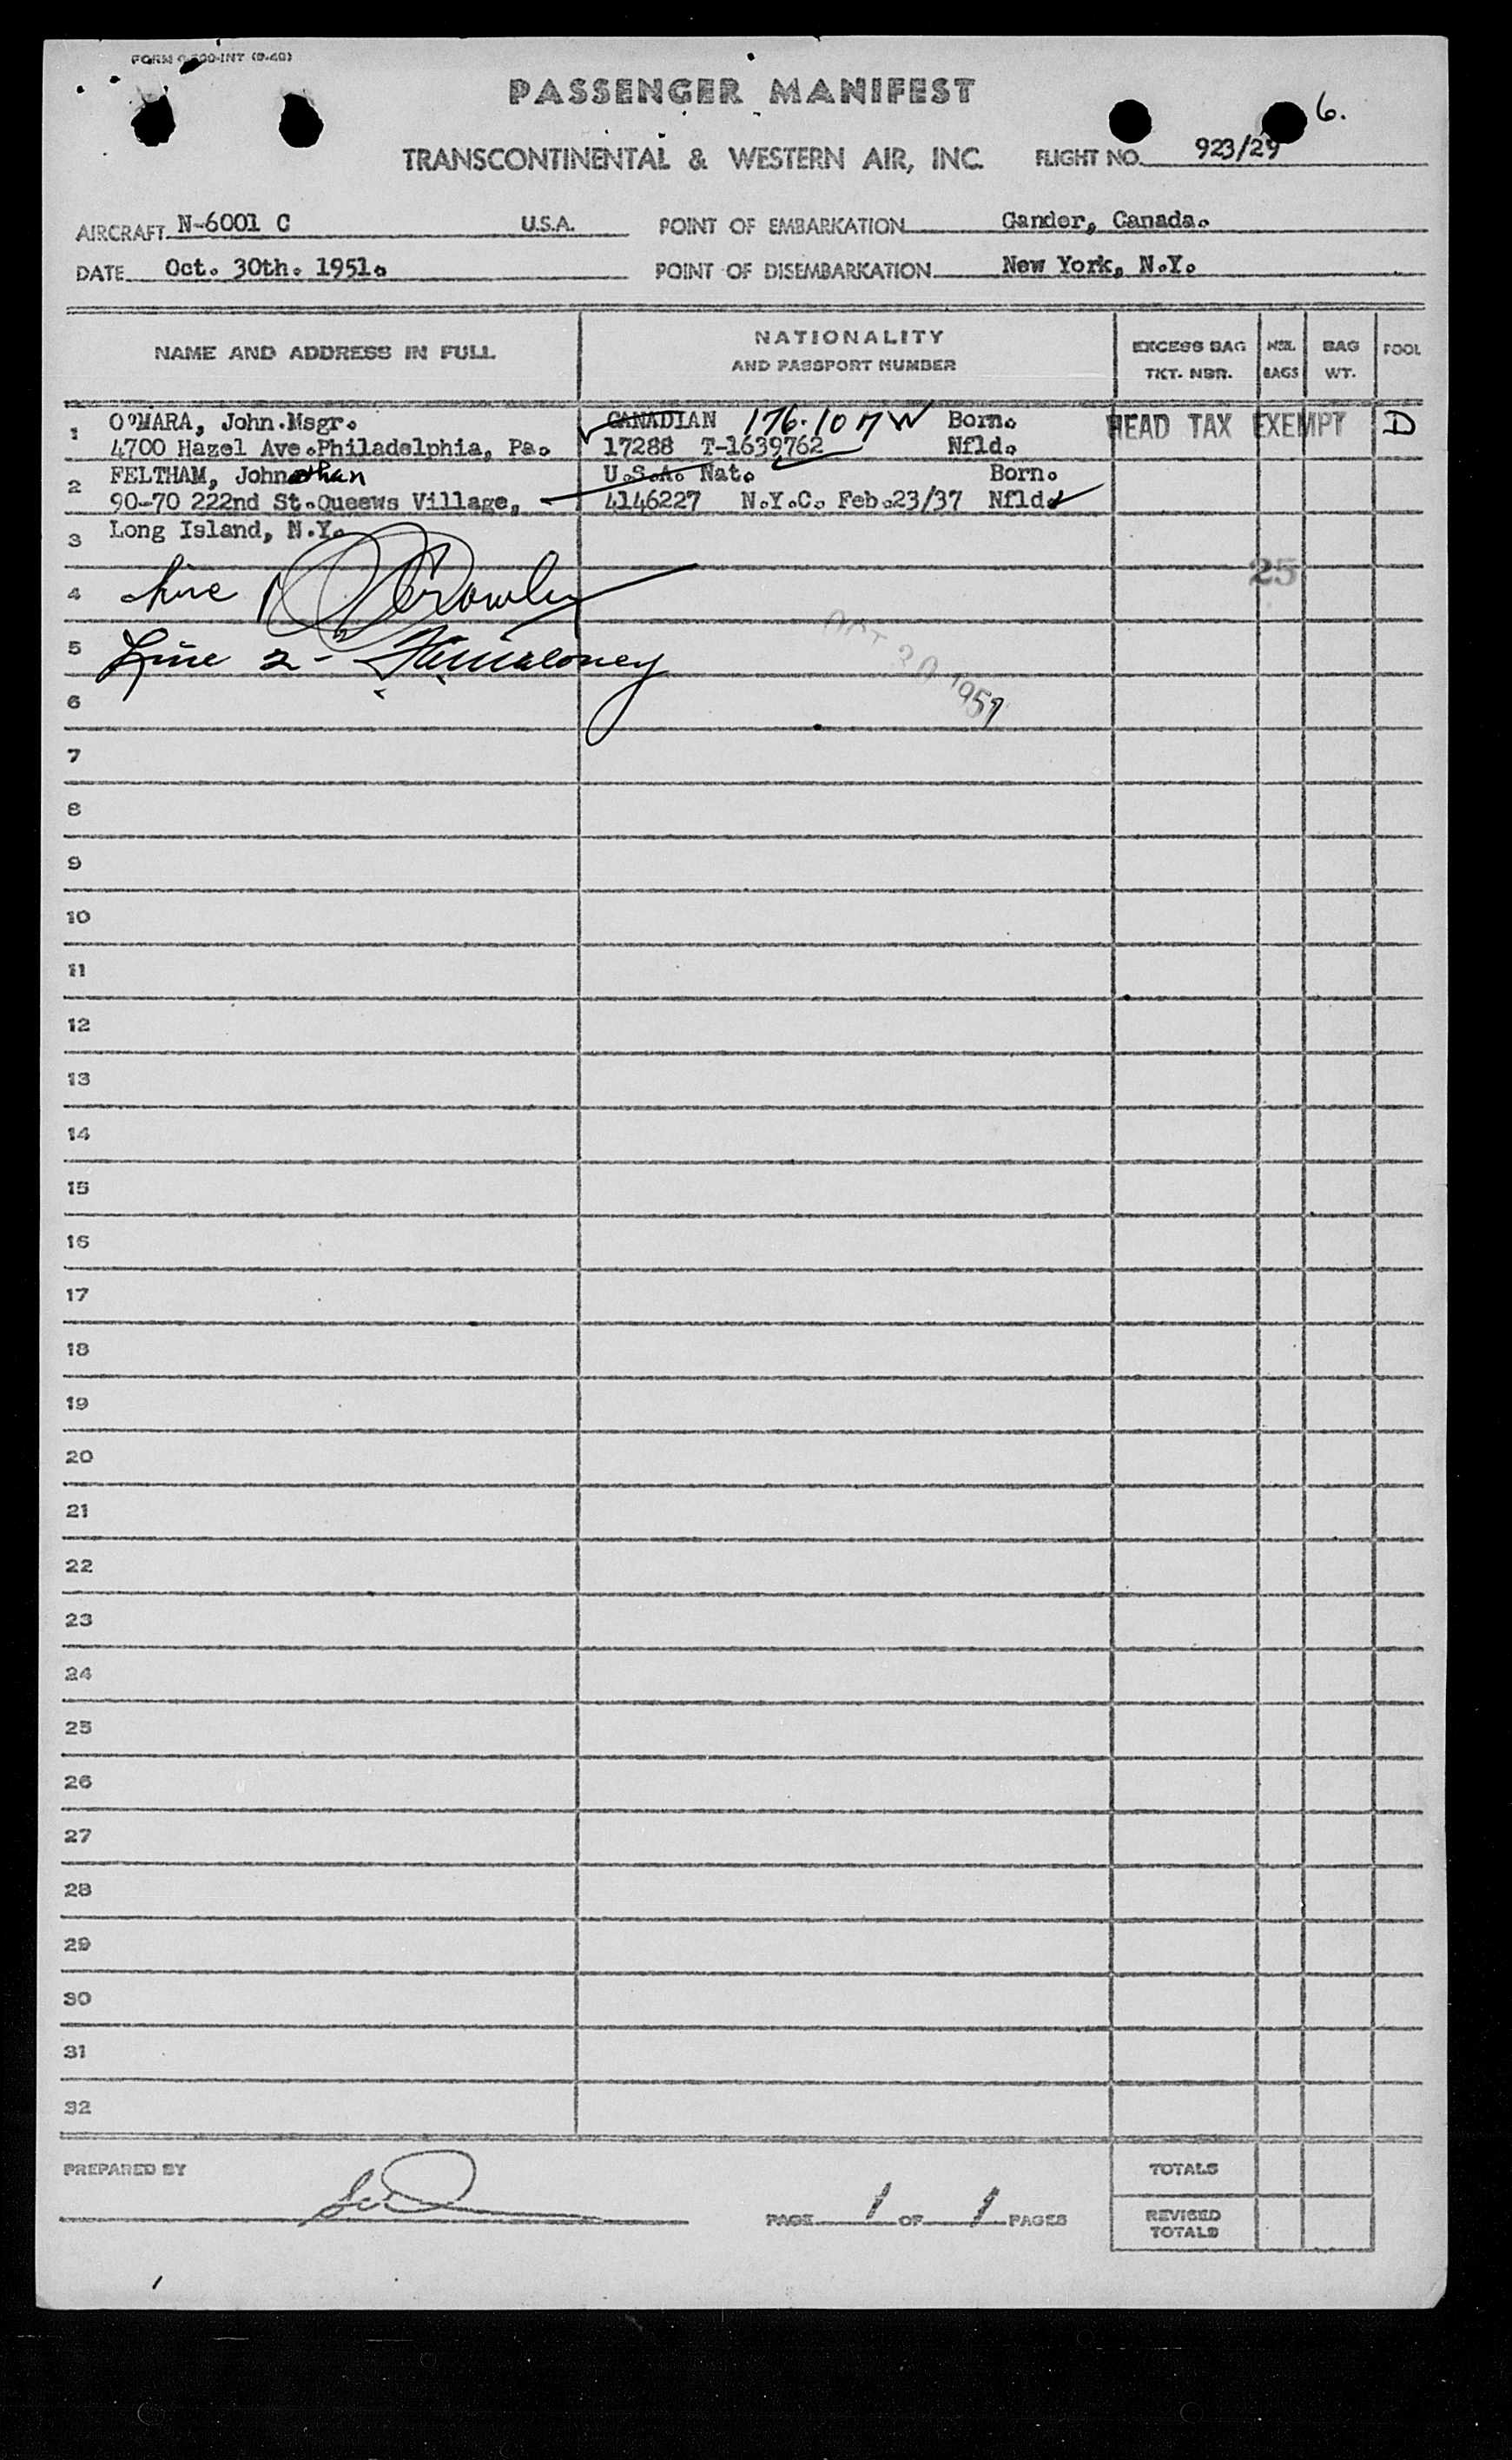 FORM INT (9-48)
PASSENGER MANIFEST
6.
TRANSCONTINENTAL & WESTERN AIR, INC.
FLIGHT NO. 923/29
AIRCRAFT N-6001 C U.S.A. POINT OF EMBARKATION Gander, Canada.
DATE Oct. 30th. 1951. POINT OF DISEMBARKATION New York, N.Y.
NAME AND ADDRESS IN FULL
NATIONALITY
AND PASSPORT NUMBER
EXCESS BAG
TKT. NBR.
NBR.
BAGS
BAG
WT.
POOL
1 O'MARA, John.Msgr. CANADIAN 176.10 Born. HEAD TAX EXEMPT D
4700 Hazel Ave.Philadelphia, Pa. 17288 T-1639762 Nfld.
2 FELTHAM, Johnathan U.S.A. Nat. Born.
90-70 222nd St.Queews Village, 4146227 N.Y.C. Feb.23/37 Nfld.
3 Long Island, N.Y.
25
4 Line Crowley
5 Line 2 - Maloney
1951
6
7
8
9
10
11
12
13
14
15
16
17
18
19
20
21
22
23
24
25
26
27
28
29
30
31
32
PREPARED BY
PAGE 1 OF 1 PAGES
TOTALS
REVISED
TOTALS